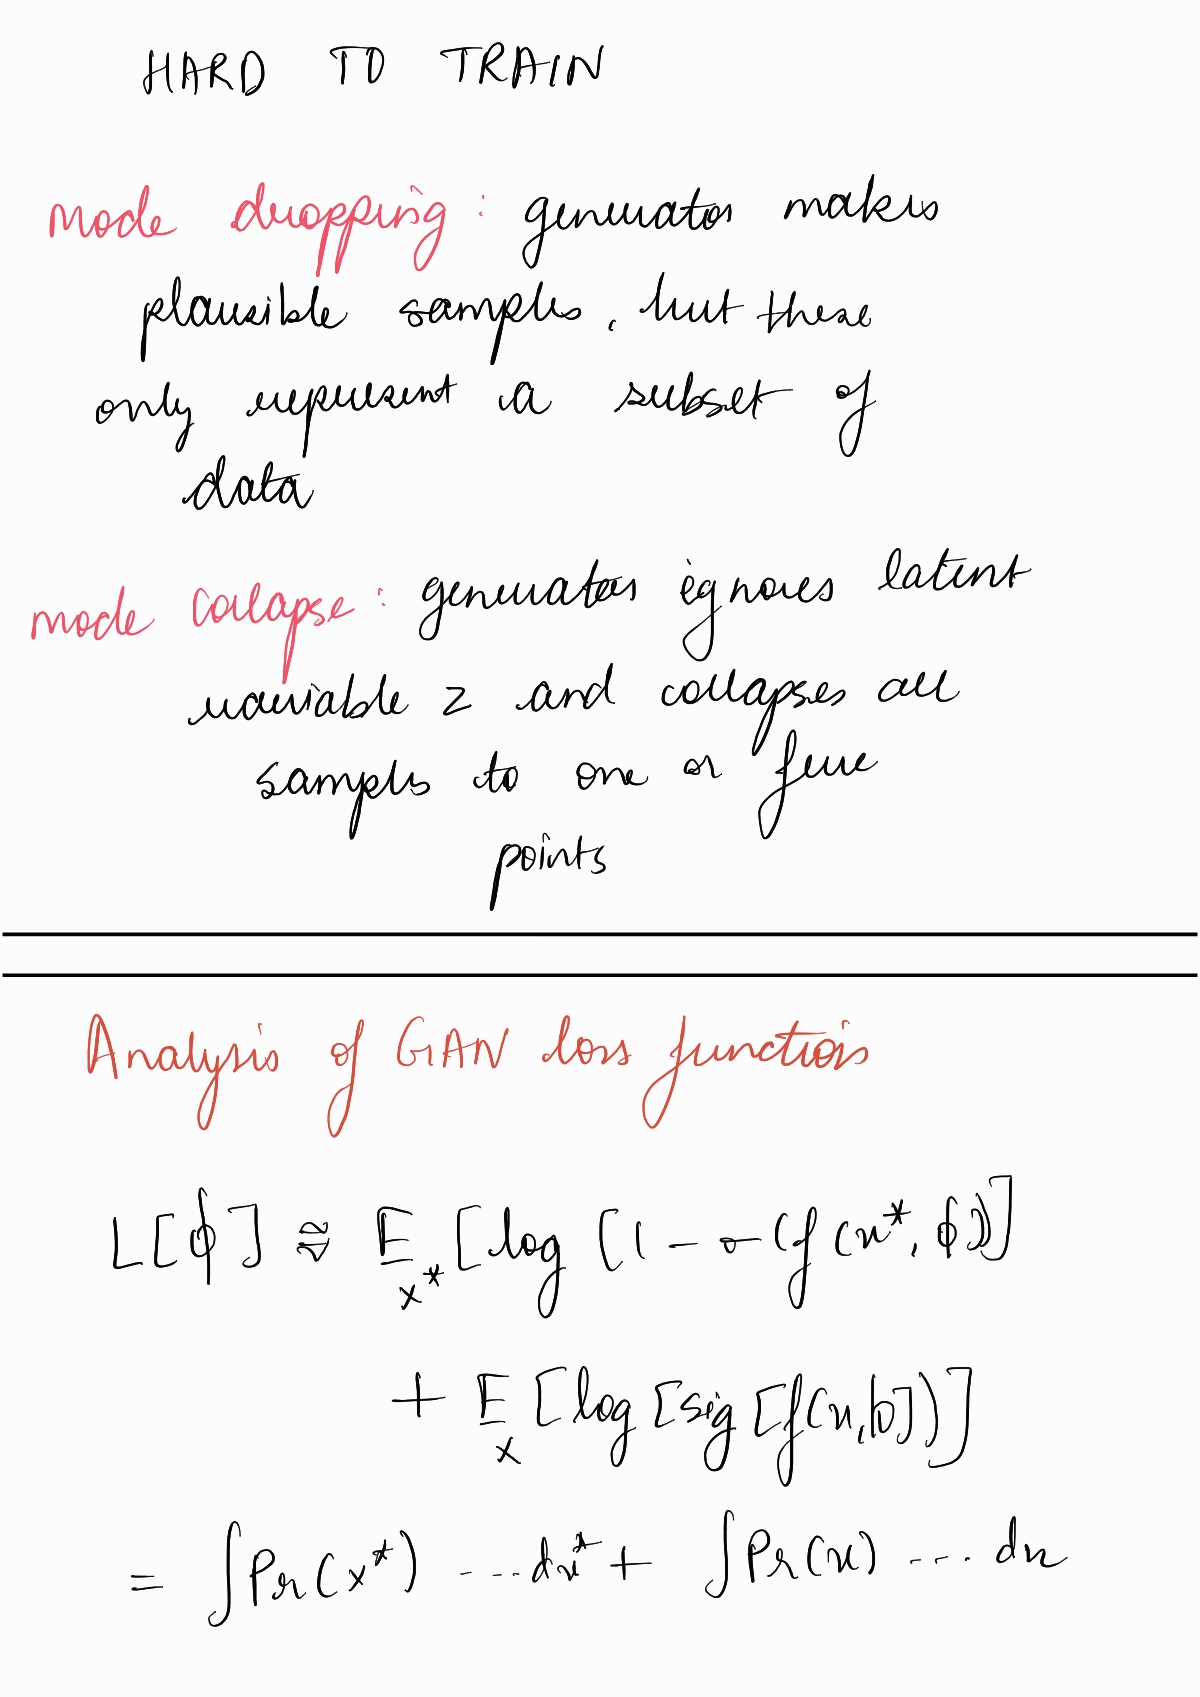 HARD TO TRAIN
mode dropping : generator makes
plausible samples, but these
only represent a subset of
data
mode collapse : generator ignores latent
variable z and collapses all
samples to one or few
points
Analysis of GAN loss function
L[ϕ] ≈ E_x* [log [1 - σ(f(x*, ϕ))]
+ E_x [log [sig [f(x,ϕ])]
= ∫Pr(x*) ... dx* + ∫Pr(x) ... dx